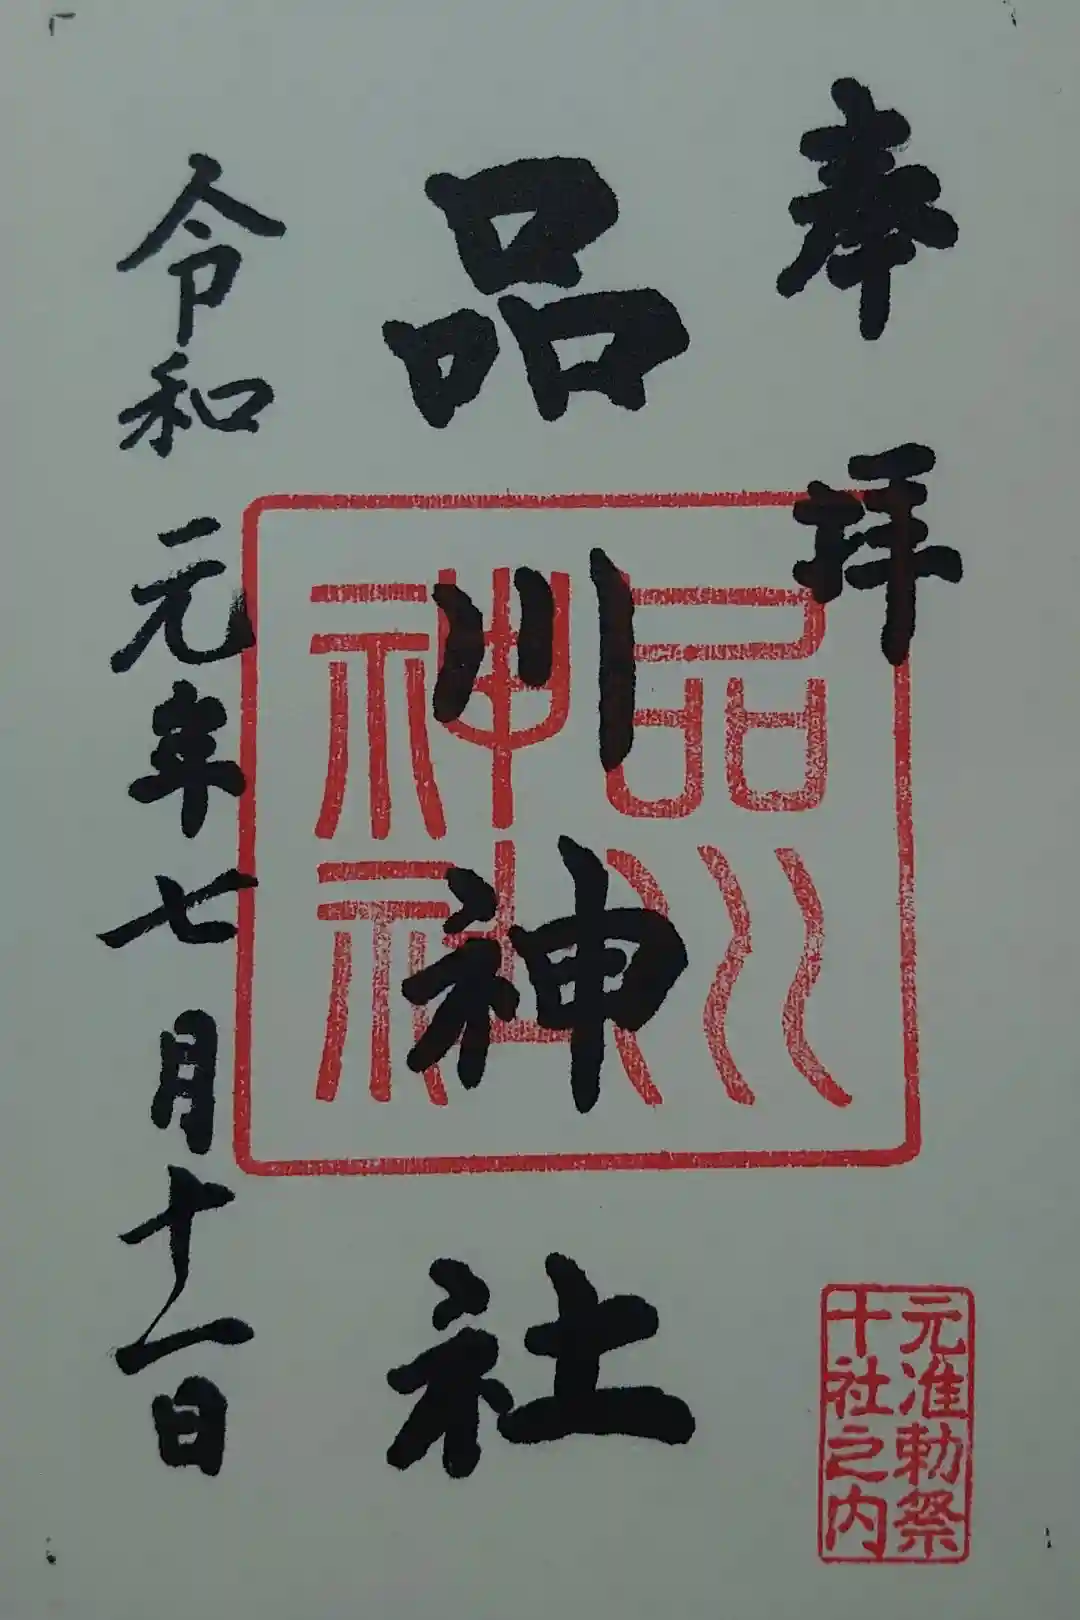 奉拝
品川神社
品川
神社
令和元年七月十一日
元准勅祭
十社之内